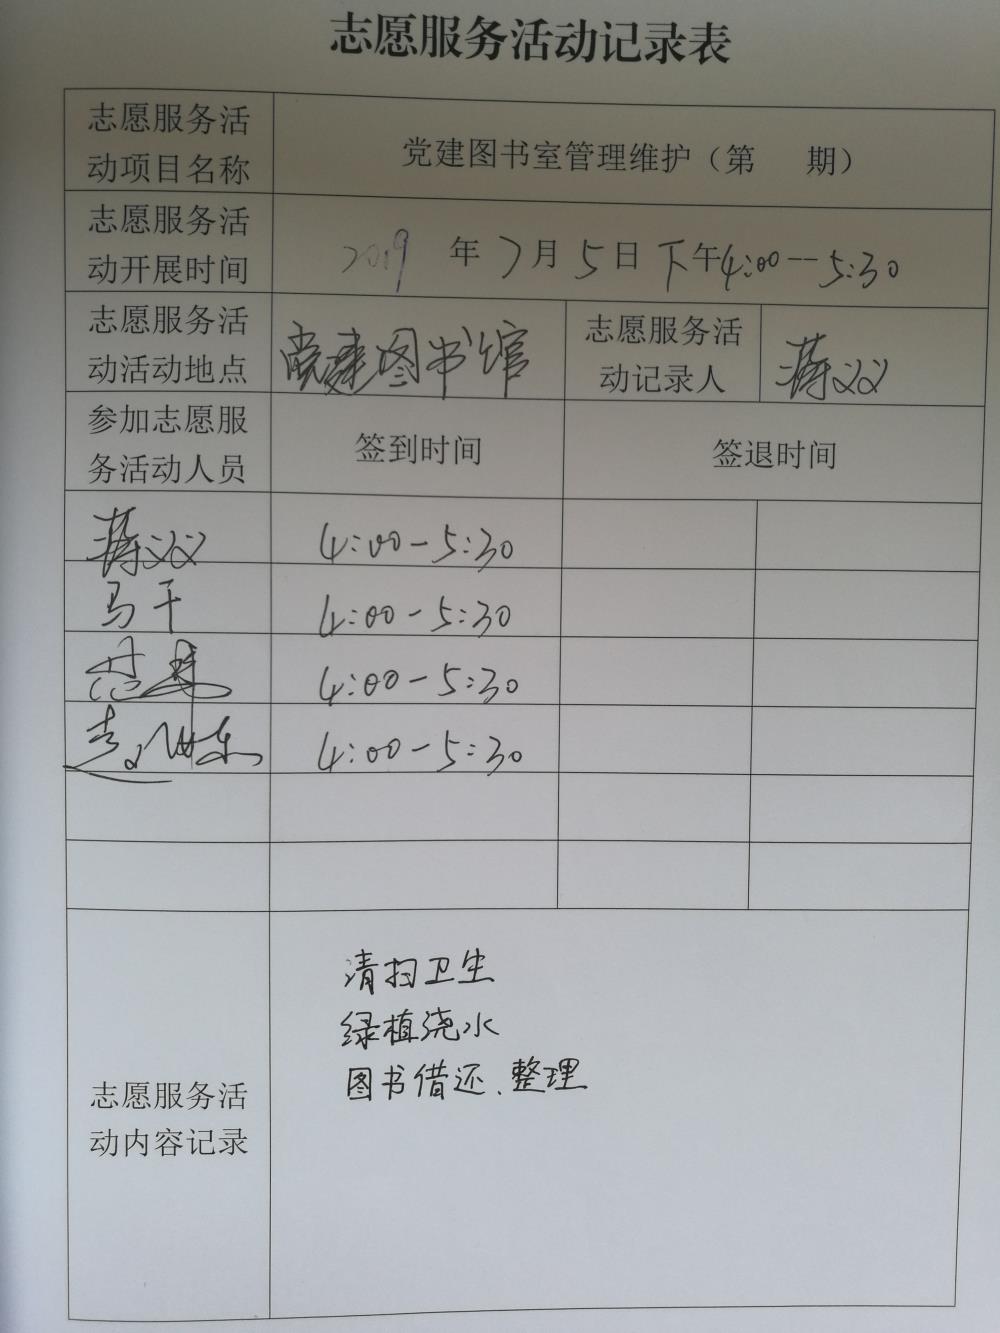 志愿服务活动记录表
志愿服务活
动项目名称
党建图书室管理维护（第 期）
志愿服务活
动开展时间
2019 年 7月 5日 下午4:00--5:30
志愿服务活
动活动地点
党建图书馆
志愿服务活
动记录人
蒋义义
参加志愿服
务活动人员
签到时间
签退时间
蒋义义
4:00-5:30
马千
4:00-5:30
4:00-5:30
4:00-5:30
志愿服务活
动内容记录
清扫卫生
绿植浇水
图书借还、整理